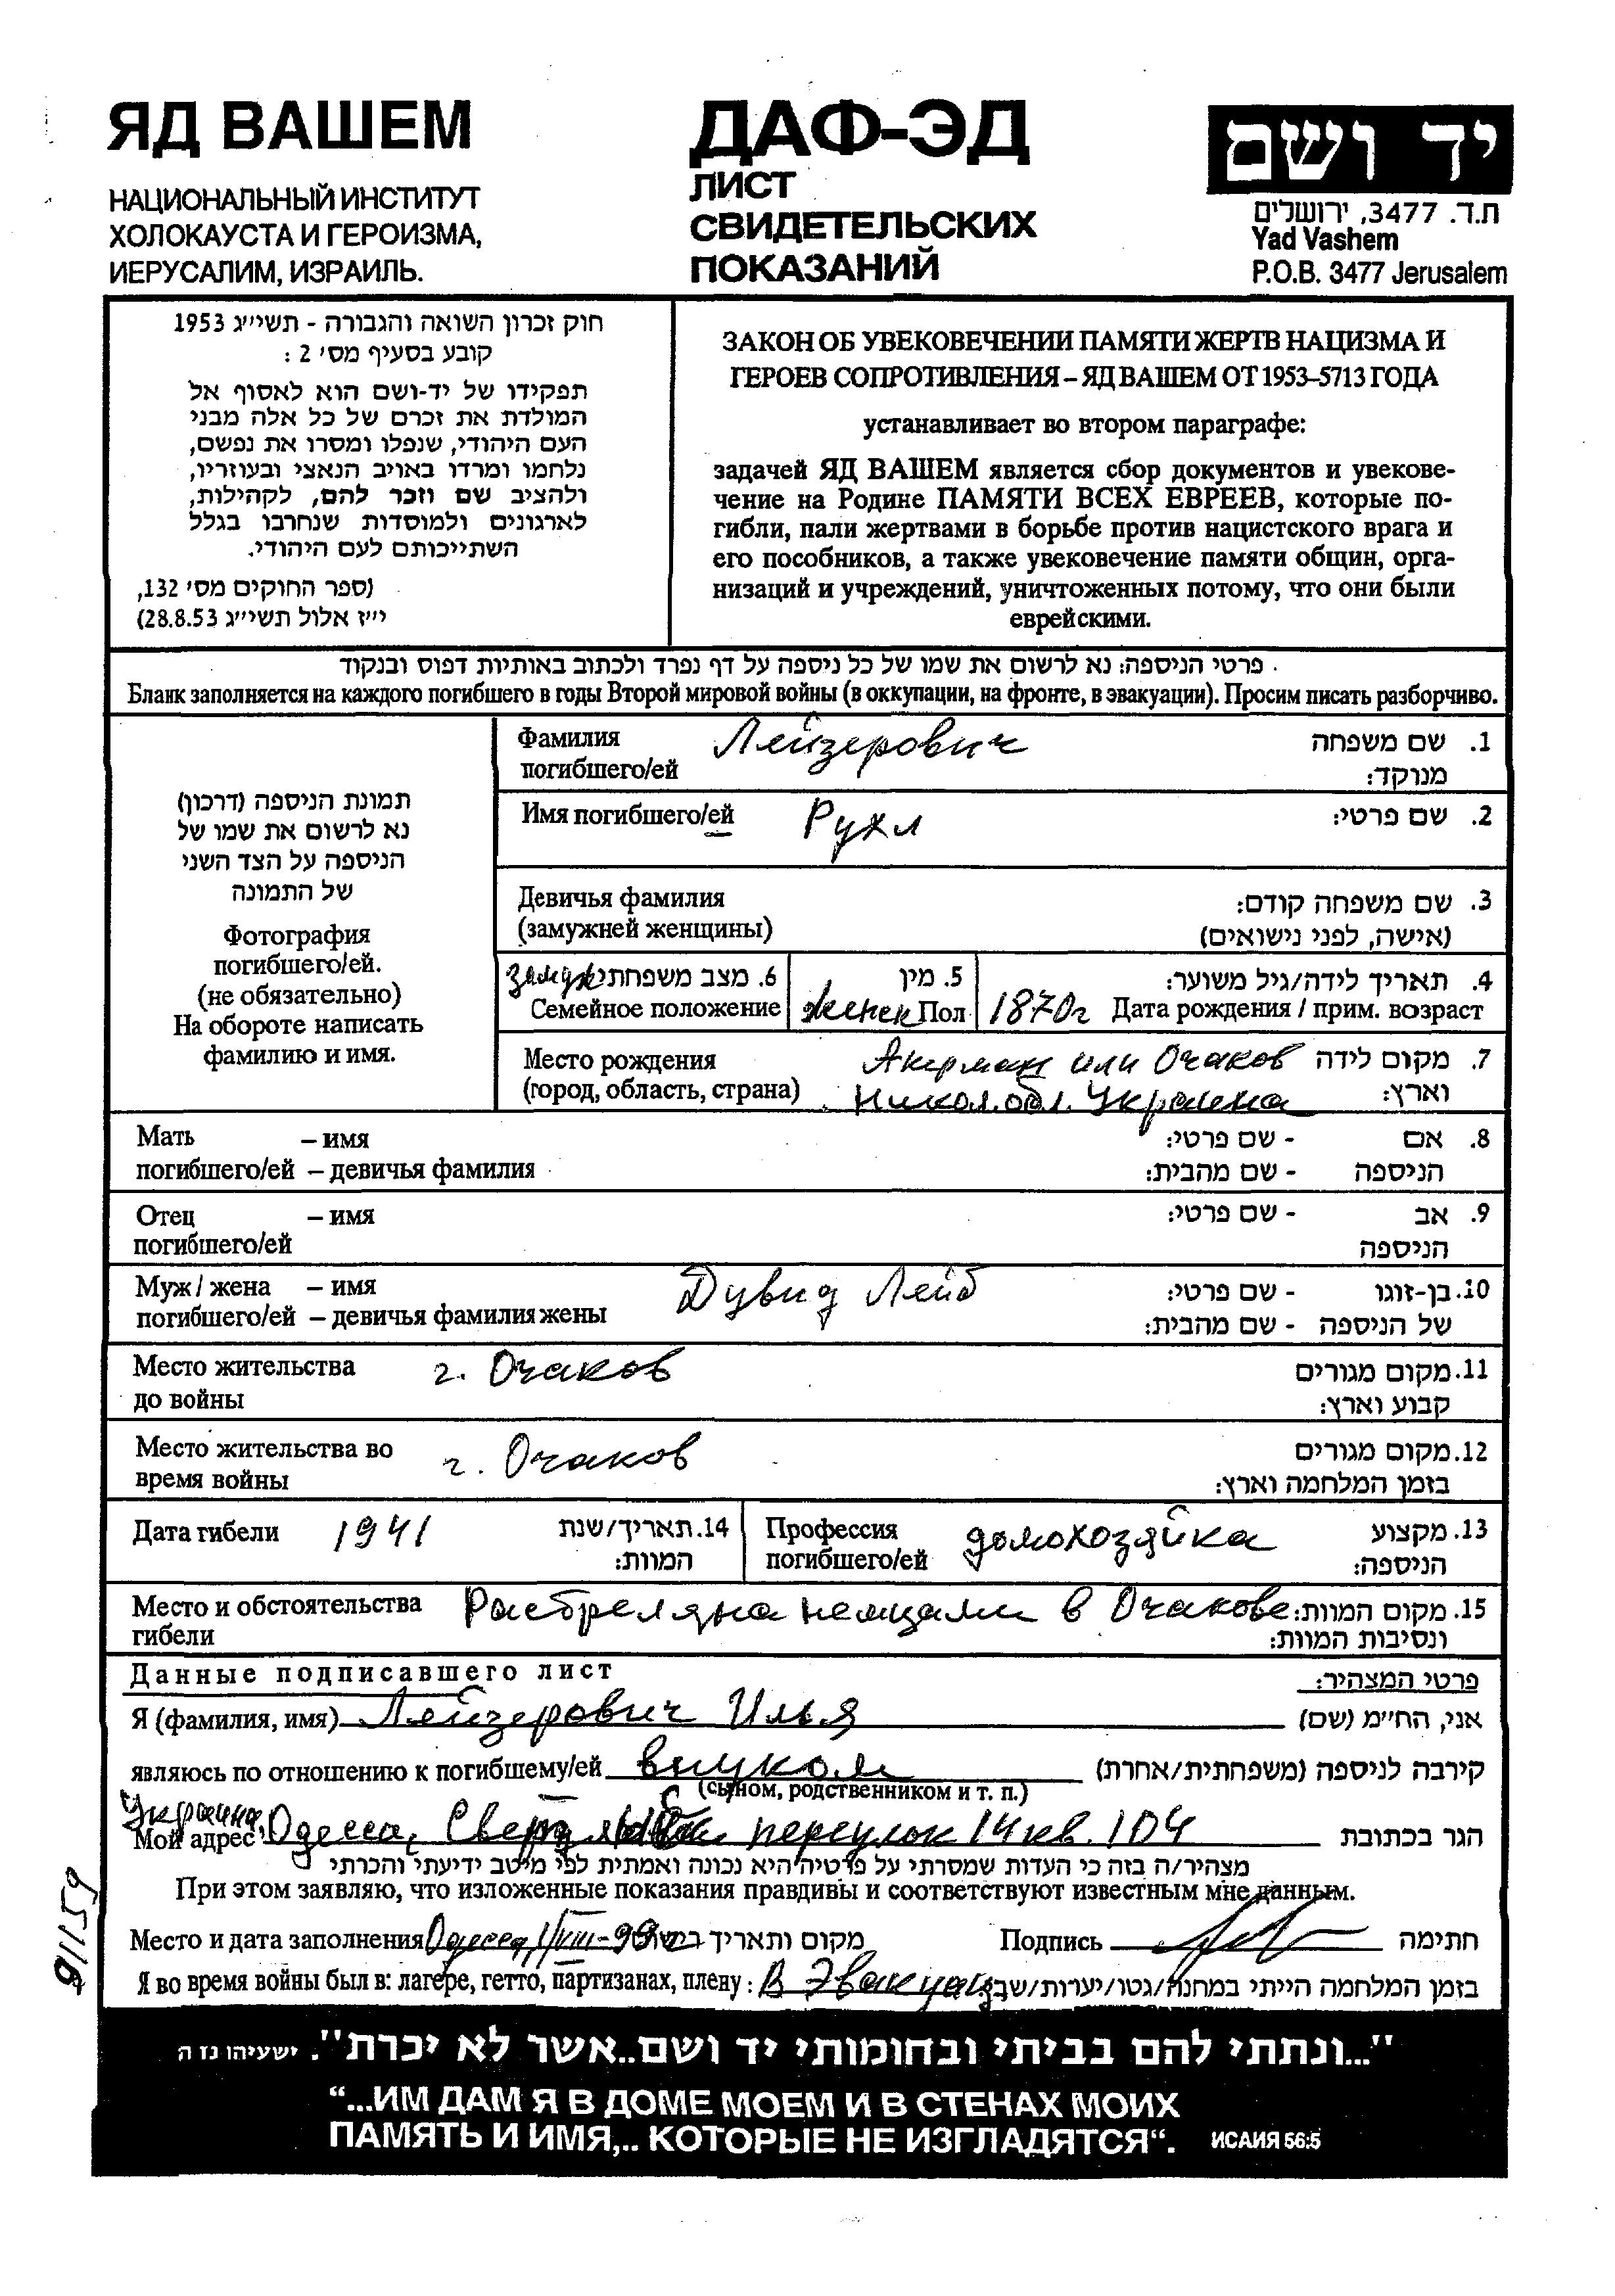 ЯД ВАШЕМ
НАЦИОНАЛЬНЫЙ ИНСТИТУТ
ХОЛОКАУСТА И ГЕРОИЗМА,
ИЕРУСАЛИМ, ИЗРАИЛЬ.
ДАФ-ЭД
ЛИСТ
СВИДЕТЕЛЬСКИХ
ПОКАЗАНИЙ
יד ושם
ת.ד. 3477, ירושלים
Yad Vashem
P.O.B. 3477 Jerusalem
חוק זכרון השואה והגבורה - תשי״ג 1953
קובע בסעיף מס׳ 2 :
תפקידו של יד-ושם הוא לאסוף אל
המולדת את זכרם של כל אלה מבני
העם היהודי, שנפלו ומסרו את נפשם,
נלחמו ומרדו באויב הנאצי ובעוזריו,
ולהציב שם וזכר להם, לקהילות,
לארגונים ולמוסדות שנחרבו בגלל
השתייכותם לעם היהודי.
(ספר החוקים מס׳ 132,
י״ז אלול תשי״ג 28.8.53)
ЗАКОН ОБ УВЕКОВЕЧЕНИИ ПАМЯТИ ЖЕРТВ НАЦИЗМА И
ГЕРОЕВ СОПРОТИВЛЕНИЯ – ЯД ВАШЕМ ОТ 1953–5713 ГОДА
устанавливает во втором параграфе:
задачей ЯД ВАШЕМ является сбор документов и увекове-
чение на Родине ПАМЯТИ ВСЕХ ЕВРЕЕВ, которые по-
гибли, пали жертвами в борьбе против нацистского врага и
его пособников, а также увековечение памяти общин, орга-
низаций и учреждений, уничтоженных потому, что они были
еврейскими.
פרטי הניספה: נא לרשום את שמו של כל ניספה על דף נפרד ולכתוב באותיות דפוס ובנקוד
Бланк заполняется на каждого погибшего в годы Второй мировой войны (в оккупации, на фронте, в эвакуации). Просим писать разборчиво.
תמונת הניספה (דרכון)
נא לרשום את שמו של
הניספה על הצד השני
של התמונה
Фотография
погибшего/ей.
(не обязательно)
На обороте написать
фамилию и имя.
Фамилия Лейзерович 1. שם משפחה
погибшего/ей מנוקד:
Имя погибшего/ей Рухл 2. שם פרטי:
Девичья фамилия 3. שם משפחה קודם:
(замужней женщины) (אישה, לפני נישואים)
замуж 6. מצב משפחתי 5. מין 4. תאריך לידה/גיל משוער:
Семейное положение женск Пол 1870г Дата рождения / прим. возраст
Место рождения Акерман или Очаков 7. מקום לידה
(город, область, страна) Никол. обл. Украина וארץ:
Мать – имя - שם פרטי: 8. אם
погибшего/ей – девичья фамилия - שם מהבית: הניספה
Отец – имя - שם פרטי: 9. אב
погибшего/ей הניספה
Муж / жена – имя Дувид Лейб - שם פרטי: 10. בן-זוגו
погибшего/ей – девичья фамилия жены - שם מהבית: של הניספה
Место жительства г. Очаков 11. מקום מגורים
до войны קבוע וארץ:
Место жительства во г. Очаков 12. מקום מגורים
время войны בזמן המלחמה וארץ:
Дата гибели 1941 14. תאריך/שנת
המוות:
Профессия домохозяйка 13. מקצוע
погибшего/ей הניספה:
Место и обстоятельства Расстреляна немцами в Очакове 15. מקום המוות:
гибели ונסיבות המוות:
Данные подписавшего лист פרטי המצהיר:
Я (фамилия, имя) Лейзерович Илья אני, הח״מ (שם)
являюсь по отношению к погибшему/ей внуком קירבה לניספה (משפחתית/אחרת)
(сыном, родственником и т. п.)
Украина
Мой адрес Одесса, переулок 14 кв. 104 הגר בכתובת
מצהיר/ה בזה כי העדות שמסרתי על פרטיה היא נכונה ואמתית לפי מיטב ידיעתי והכרתי
При этом заявляю, что изложенные показания правдивы и соответствуют известным мне данным.
Место и дата заполнения Одесса, 1/VIII-99 מקום ותאריך Подпись חתימה
Я во время войны был в: лагере, гетто, партизанах, плену: В Эвакуац בזמן המלחמה הייתי במחנה/גטו/יערות/שבי
91159
"...ונתתי להם בביתי ובחומותי יד ושם..אשר לא יכרת". ישעיהו נז ה
“...ИМ ДАМ Я В ДОМЕ МОЕМ И В СТЕНАХ МОИХ
ПАМЯТЬ И ИМЯ,.. КОТОРЫЕ НЕ ИЗГЛАДЯТСЯ“. ИСАИЯ 56:5